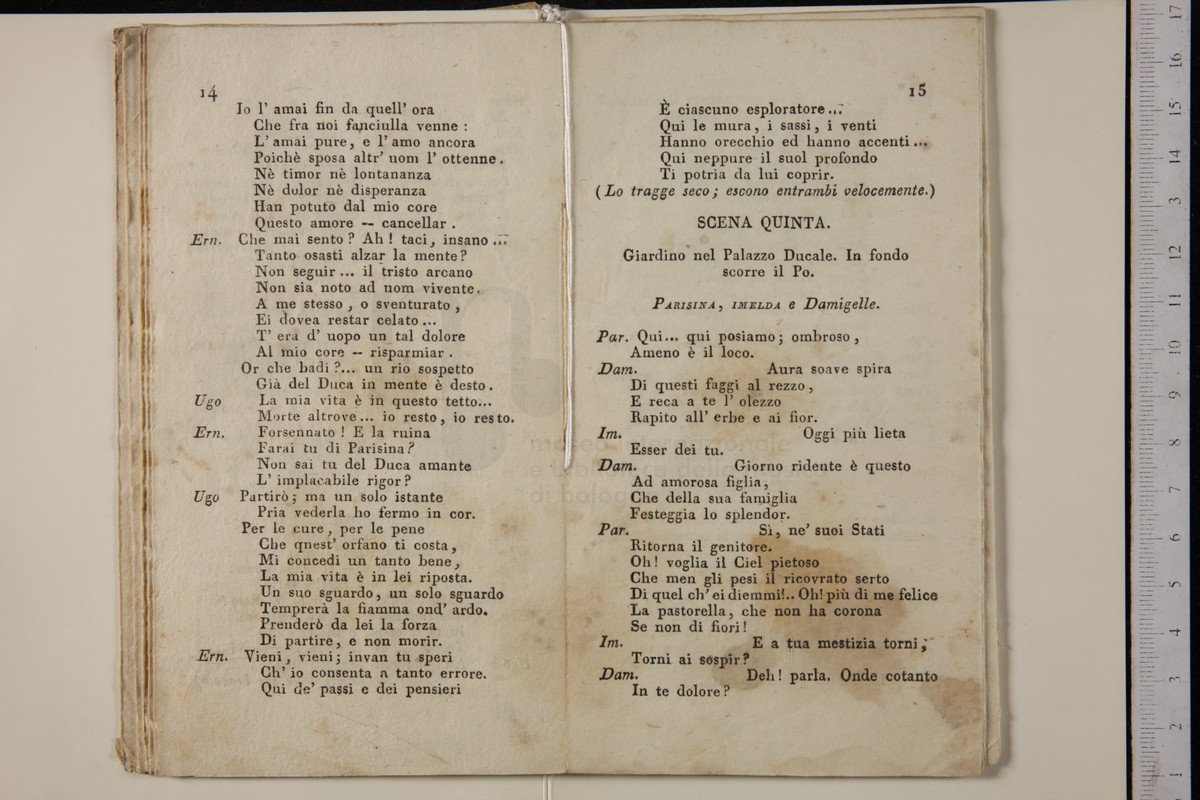 14
Io l' amai fin da quell' ora
Che fra noi fanciulla venne :
L' amai pure, e l' amo ancora
Poichè sposa altr' uom l' ottenne.
Nè timor nè lontananza
Nè dolor nè disperanza
Han potuto dal mio core
Questo amore -- cancellar .
Ern. Che mai sento ? Ah ! taci, insano ...
Tanto osasti alzar la mente ?
Non seguir ... il tristo arcano
Non sia noto ad uom vivente.
A me stesso , o sventurato ,
Ei dovea restar celato ...
T' era d' uopo un tal dolore
Al mio core -- risparmiar .
Or che badi ?... un rio sospetto
Già del Duca in mente è desto .
Ugo La mia vita è in questo tetto...
Morte altrove ... io resto , io resto.
Ern. Forsennato ! E la ruina
Farai tu di Parisina ?
Non sai tu del Duca amante
L' implacabile rigor ?
Ugo Partirò ; ma un solo istante
Pria vederla ho fermo in cor.
Per le cure , per le pene
Che qnest' orfano ti costa ,
Mi concedi un tanto bene ,
La mia vita è in lei riposta.
Un suo sguardo , un solo sguardo
Temprerà la fiamma ond' ardo.
Prenderò da lei la forza
Di partire , e non morir.
Ern. Vieni , vieni ; invan tu speri
Ch' io consenta a tanto errore.
Qui de' passi e dei pensieri
15
È ciascuno esploratore ...
Qui le mura , i sassi , i venti
Hanno orecchio ed hanno accenti ...
Qui neppure il suol profondo
Ti potria da lui coprir.
(Lo tragge seco ; escono entrambi velocemente.)
SCENA QUINTA.
Giardino nel Palazzo Ducale. In fondo
scorre il Po.
PARISINA , IMELDA e Damigelle.
Par. Qui... qui posiamo ; ombroso ,
Ameno è il loco.
Dam. Aura soave spira
Di questi faggi al rezzo ,
E reca a te l' olezzo
Rapito all' erbe e ai fior.
Im. Oggi più lieta
Esser dei tu.
Dam. Giorno ridente è questo
Ad amorosa figlia ,
Che della sua famiglia
Festeggia lo splendor.
Par. Sì , ne' suoi Stati
Ritorna il genitore.
Oh ! voglia il Ciel pietoso
Che men gli pesi il ricovrato serto
Di quel ch' ei diemmi!.. Oh! più di me felice
La pastorella , che non ha corona
Se non di fiori !
Im. E a tua mestizia torni ,
Torni ai sospir ?
Dam. Deh ! parla. Onde cotanto
In te dolore ?